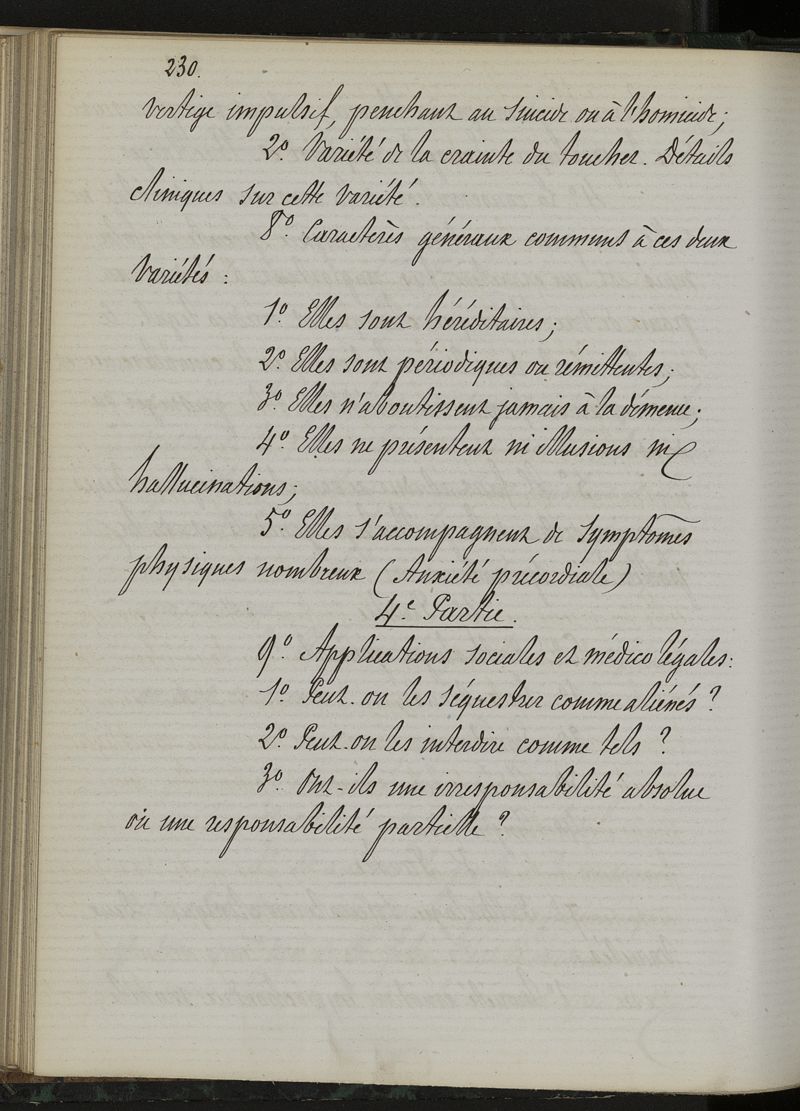 230.
vertige impulsif, penchant au suicide ou à l'homicide;
2º. Variété de la crainte du toucher. Détails
cliniques sur cette variété.
8º. Caractères généraux communs à ces deux
variétés :
1º. Elles sont héréditaires;
2º. Elles sont périodiques ou rémittentes;
3º. Elles n'aboutissent jamais à la démence;
4º. Elles ne présentent ni illusions ni
hallucinations;
5º. Elles s'accompagnent de symptômes
physiques nombreux (Anxiété précordiale)
4e. Partie.
9º. Applications sociales et médico légales:
1º. Peut-on les séquestrer comme aliénés ?
2º. Peut-on les interdire comme tels ?
3º. Ont-ils une irresponsabilité absolue
ou une responsabilité partielle ?